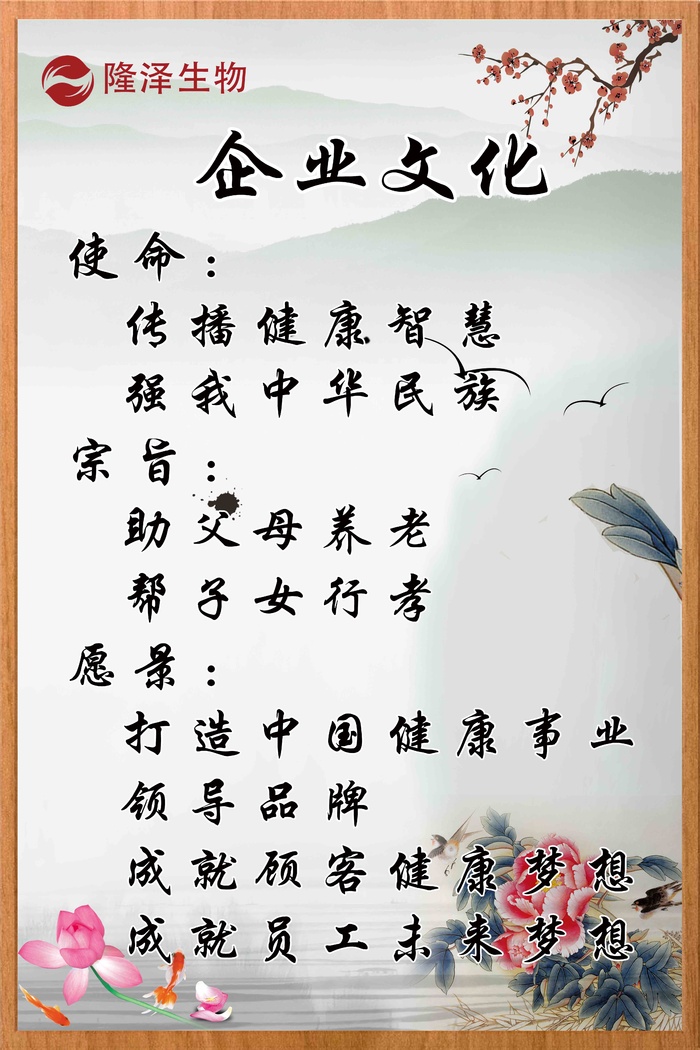 隆泽生物
企业文化
使命：
传播健康智慧
强我中华民族
宗旨：
助父母养老
帮子女行孝
愿景：
打造中国健康事业
领导品牌
成就顾客健康梦想
成就员工未来梦想